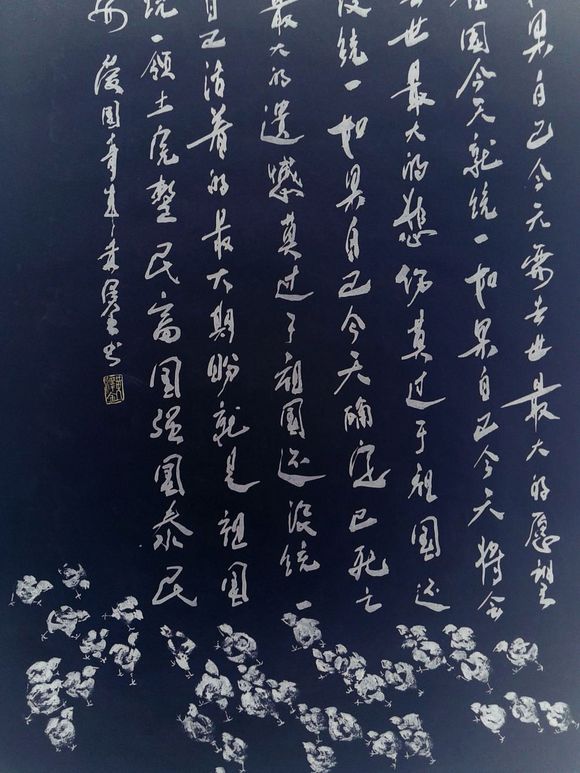 果自己今天去世最大的愿望
祖国今天就统一如果自己今天将会
去世最大的悲伤莫过于祖国还
没统一如果自己今天确定已死亡
最大的遗憾莫过于祖国还没统一
自己活着的最大期盼就是祖国
统一领土完整民富国强国泰民
安 爱国青年书